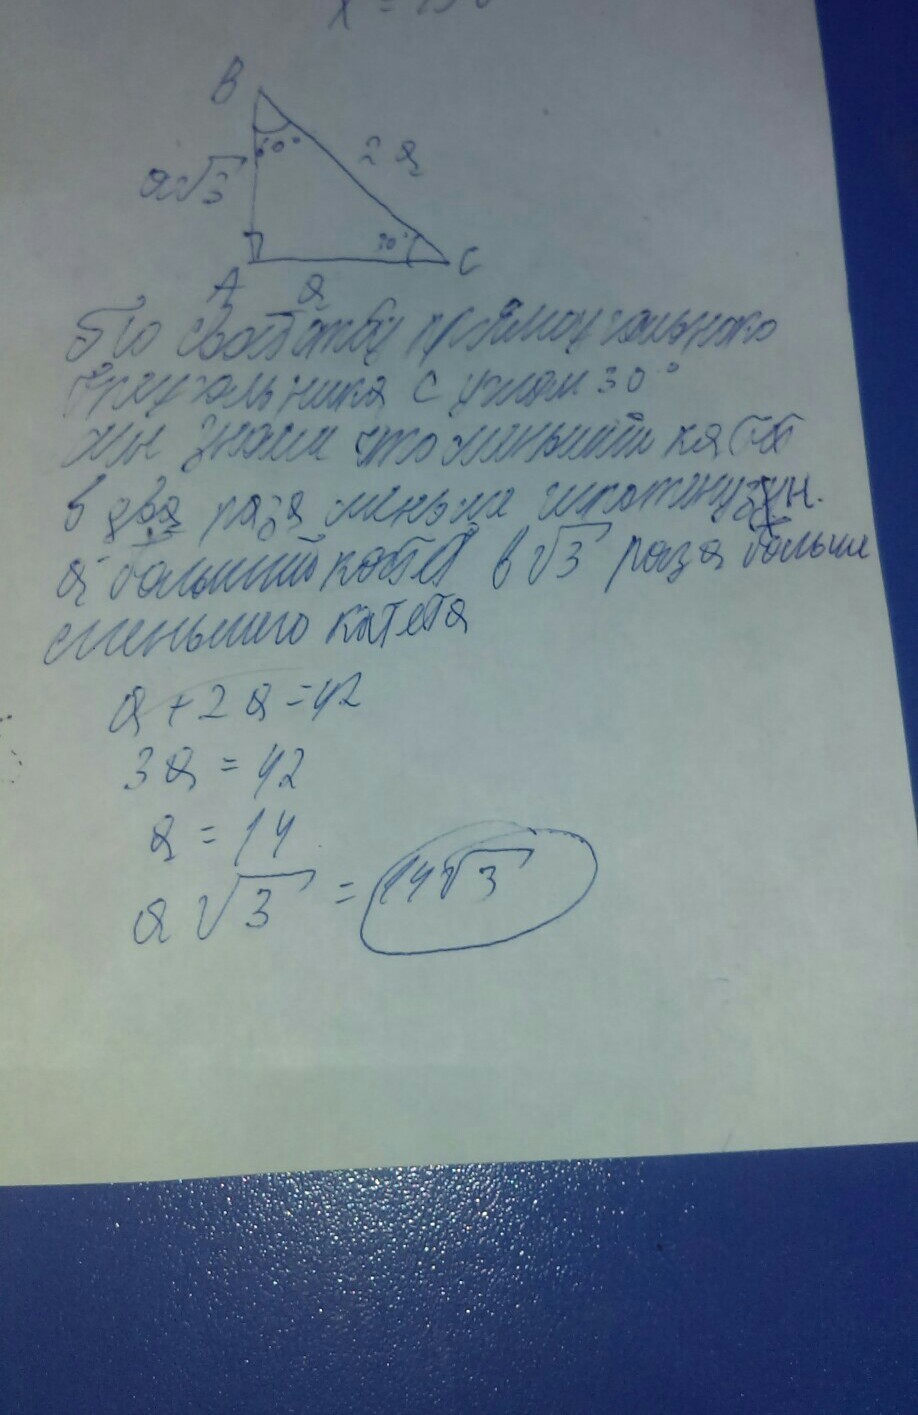 B
60°
2a
a√3
30°
A
a
C
По свойству прямоугольного
треугольника с углом 30°
мы знаем что меньший катет
в два раза меньше гипотенузы.
а больший катет в √3 раза больше
меньшего катета
a + 2a = 42
3a = 42
a = 14
a√3 = 14√3